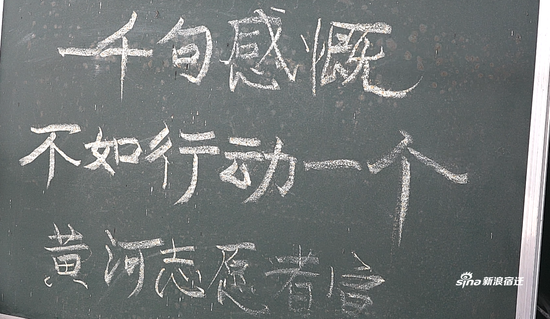 一千句感慨
不如行动一个
黄河志愿者
sina新浪宿迁